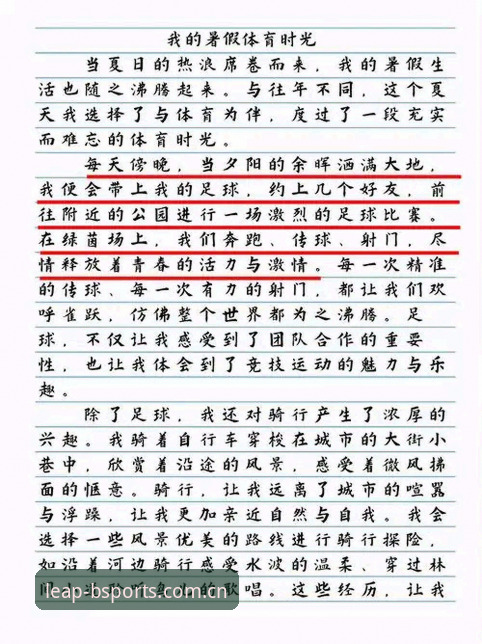 我的暑假体育时光
当夏日的热浪席卷而来，我的暑假生
活也随之沸腾起来。与往年不同，这个夏
天我选择了与体育为伴，度过了一段充实
而难忘的体育时光。
每天傍晚，当夕阳的余晖洒满大地，
我便会带上我的足球，约上几个好友，前
往附近的公园进行一场激烈的足球比赛。
在绿茵场上，我们奔跑、传球、射门，尽
情释放着青春的活力与激情。每一次精准
的传球、每一次有力的射门，都让我们欢
呼雀跃，仿佛整个世界都为之沸腾。足
球，不仅让我感受到了团队合作的重要
性，也让我体会到了竞技运动的魅力与乐
趣。
除了足球，我还对骑行产生了浓厚的
兴趣。我骑着自行车穿梭在城市的大街小
巷中，欣赏着沿途的风景，感受着微风拂
面的惬意。骑行，让我远离了城市的喧嚣
与浮躁，让我更加亲近自然与自我。我会
选择一些风景优美的路线进行骑行探险，
如沿着河边骑行感受水波的温柔、穿过林
的歌唱。这些经历，让我
leap-bsports.com.cn